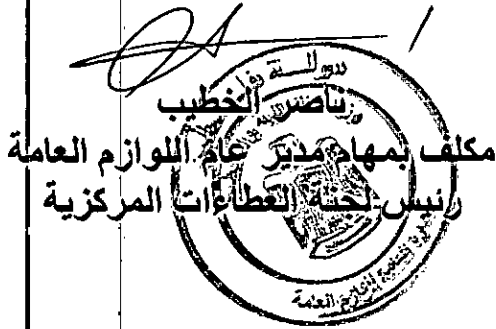 ناصر الخطيب
مكلف بمهام مدير عام اللوازم العامة
رئيس لجنة العطاءات المركزية
اللوازم العامة